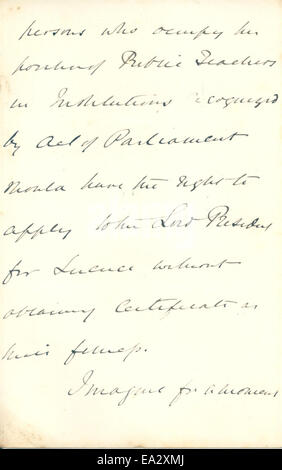 persons who occupy the
position of Public Teachers
in Institutions recognized
by Act of Parliament
should have the right to
apply to the Lord President
for Licence without
obtaining Certificate as
their fitness.
Imagine for a moment
alamy stock photo
EA2XMJ